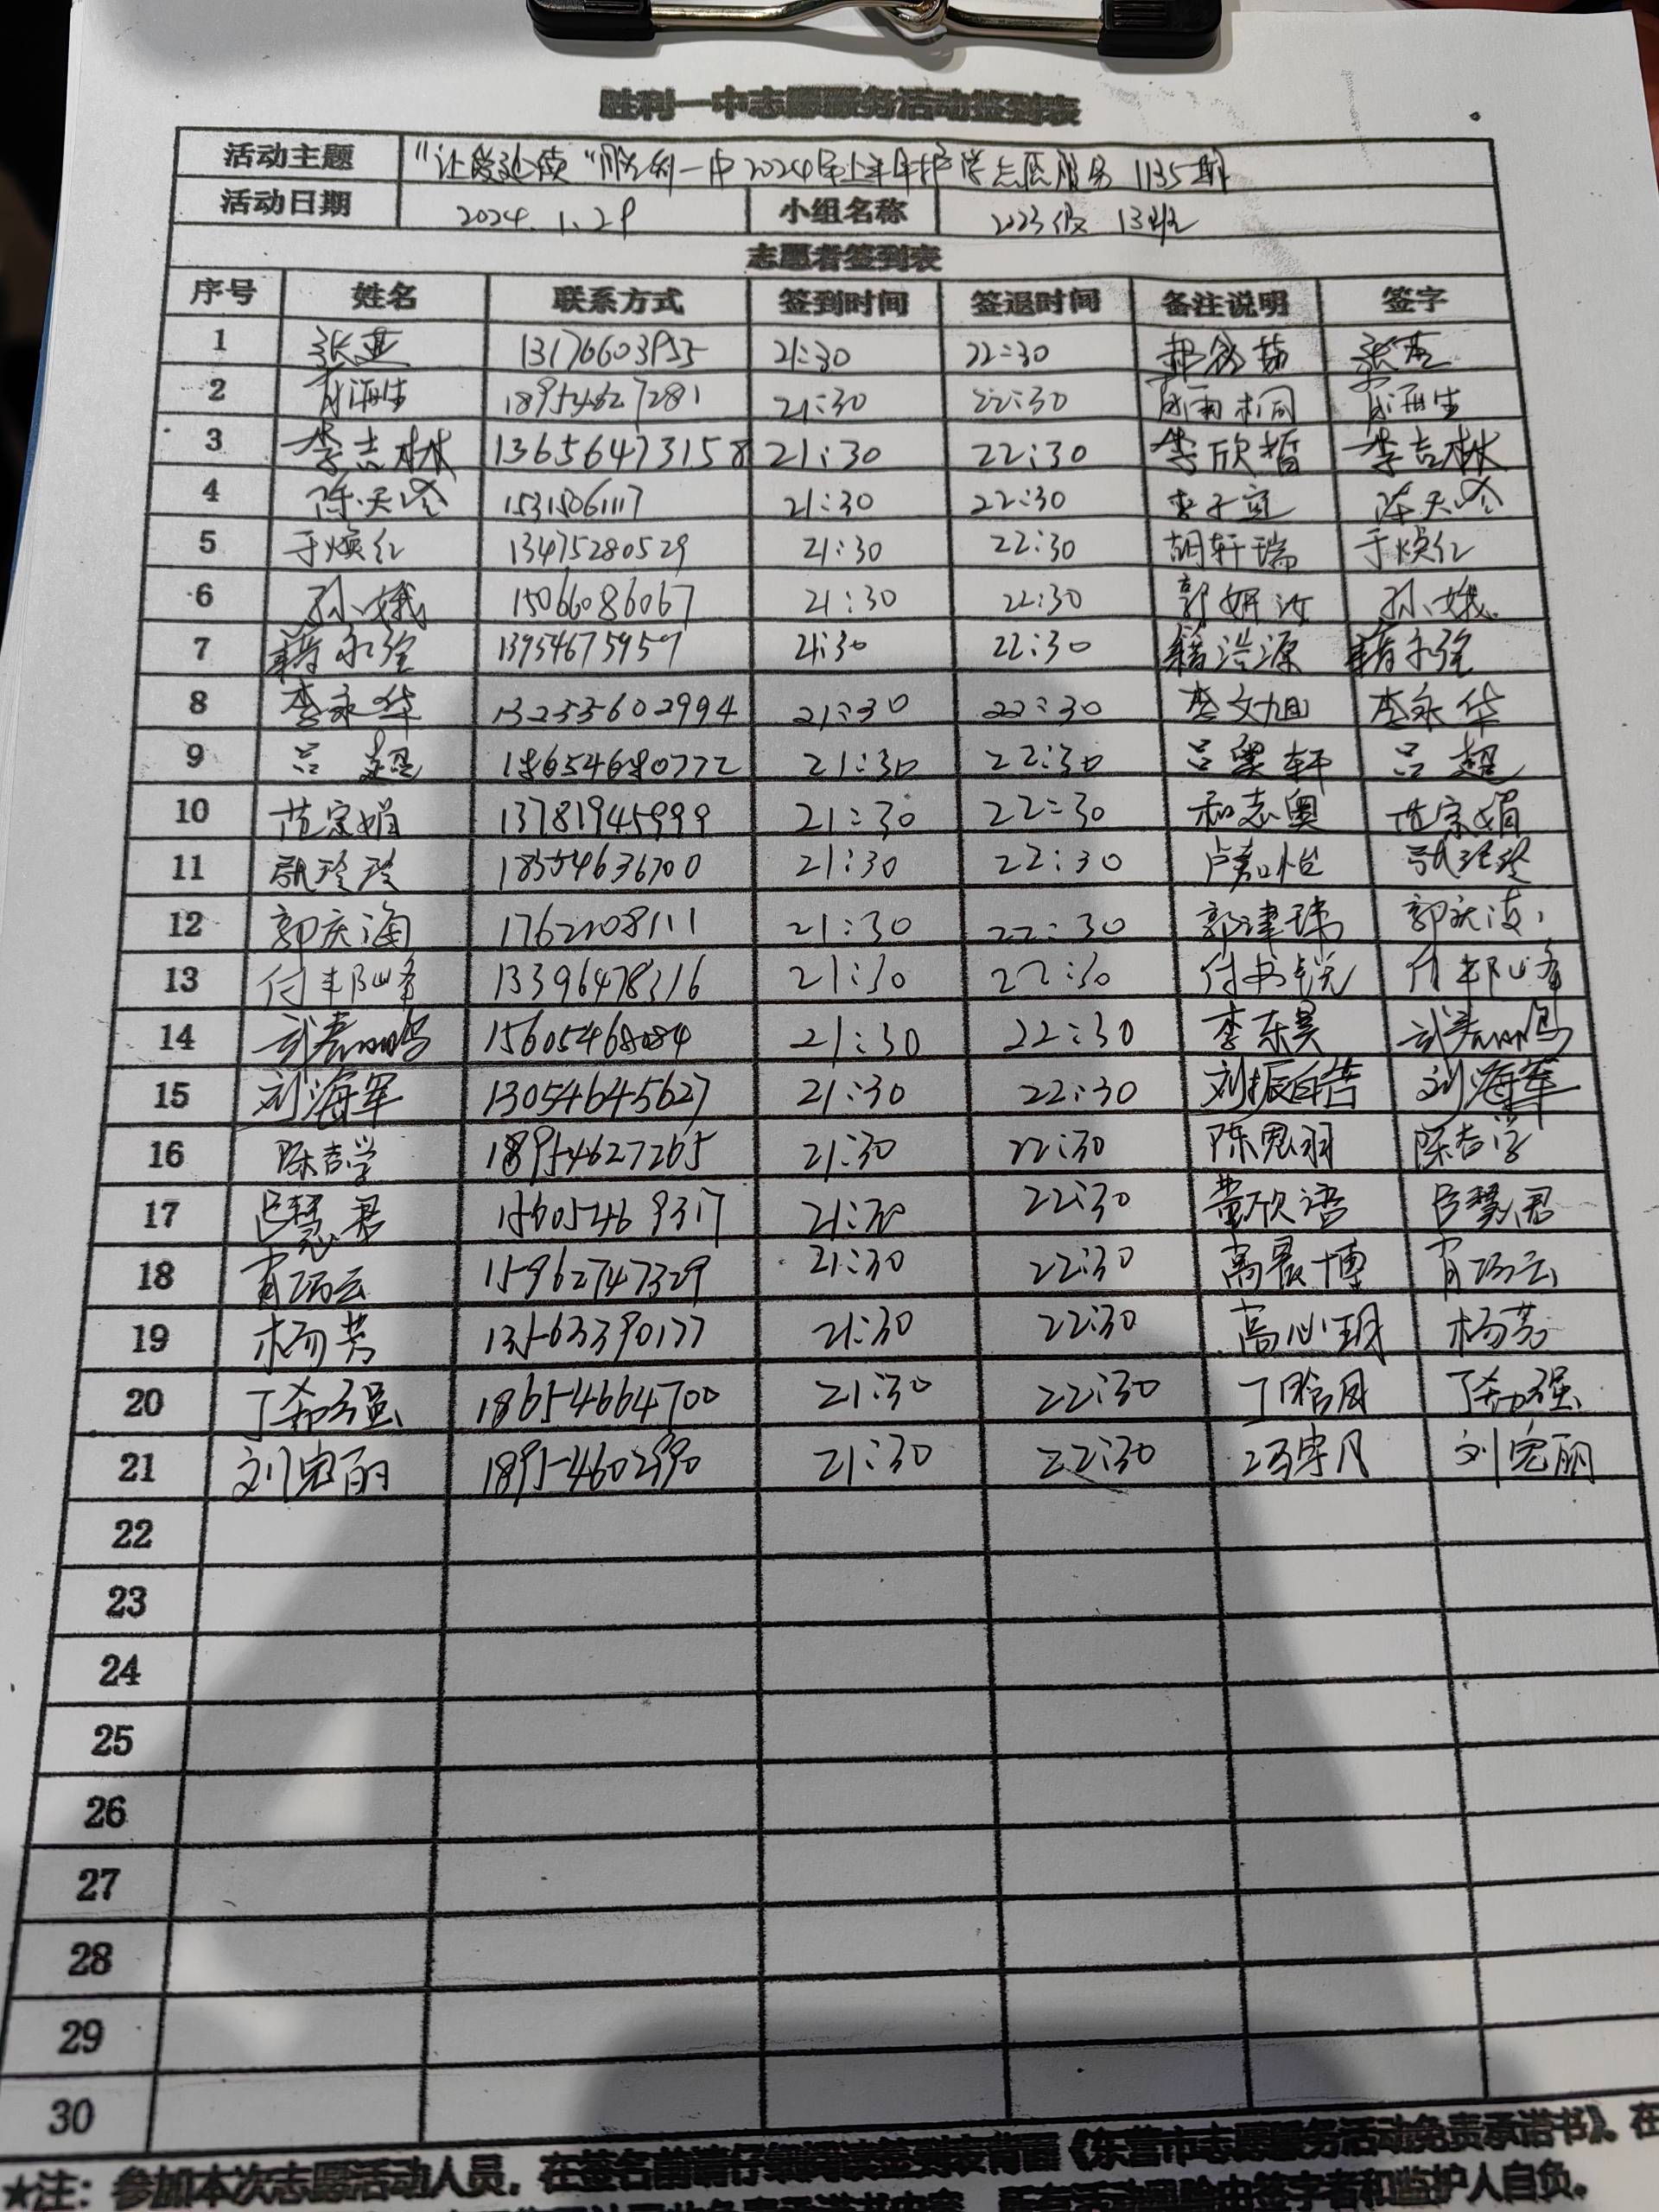 胜利一中志愿服务活动签到表
活动主题 "让爱延续"胜利一中2024年上半年护学志愿服务 1135期
活动日期 2024.1.29 小组名称 2023级 13班
志愿者签到表
序号 姓名 联系方式 签到时间 签退时间 备注说明 签字
1 张燕 13176603955 21:30 22:30 张燕
2 18954627281 21:30 22:30
3 李吉林 13656473158 21:30 22:30 李欣哲 李吉林
4 15315061117 21:30 22:30 李子宜
5 于焕红 13475280529 21:30 22:30 胡轩瑞 于焕红
6 孙娥 15066086067 21:30 22:30 郭妍汝 孙娥
7 13954675957 21:30 22:30
8 李永华 132355602994 21:30 22:30 李文旭 李永华
9 吕超 18654680772 21:30 22:30 吕奕轩 吕超
10 范宗娟 13781945999 21:30 22:30 和志奥 范宗娟
11 18554636700 21:30 22:30 卢嘉怡
12 郭庆海 21:30 22:30 郭津瑞 郭庆海
13 付丰峰 13396478316 21:30 22:30 付书悦 付丰峰
14 15605468084 21:30 22:30 李东昊
15 刘海军 13054645627 21:30 22:30 刘振 刘海军
16 陈吉学 18954627265 21:30 22:30 陈思羽 陈吉学
17 吕慧君 15605469317 21:30 22:30 董欣语 吕慧君
18 肖巧云 15962747329 21:30 22:30 高晨博 肖巧云
19 杨芳 13563390177 21:30 22:30 高心玥 杨芳
20 丁 强 18654664700 21:30 22:30 丁晗月 丁 强
21 刘宪丽 18954602990 21:30 22:30 冯宇凡 刘宪丽
22
23
24
25
26
27
28
29
30
★注：参加本次志愿活动人员，在签名前请仔细阅读签到表背面《东营市志愿服务活动免责承诺书》。在
所有活动风险由签字者和监护人自负。